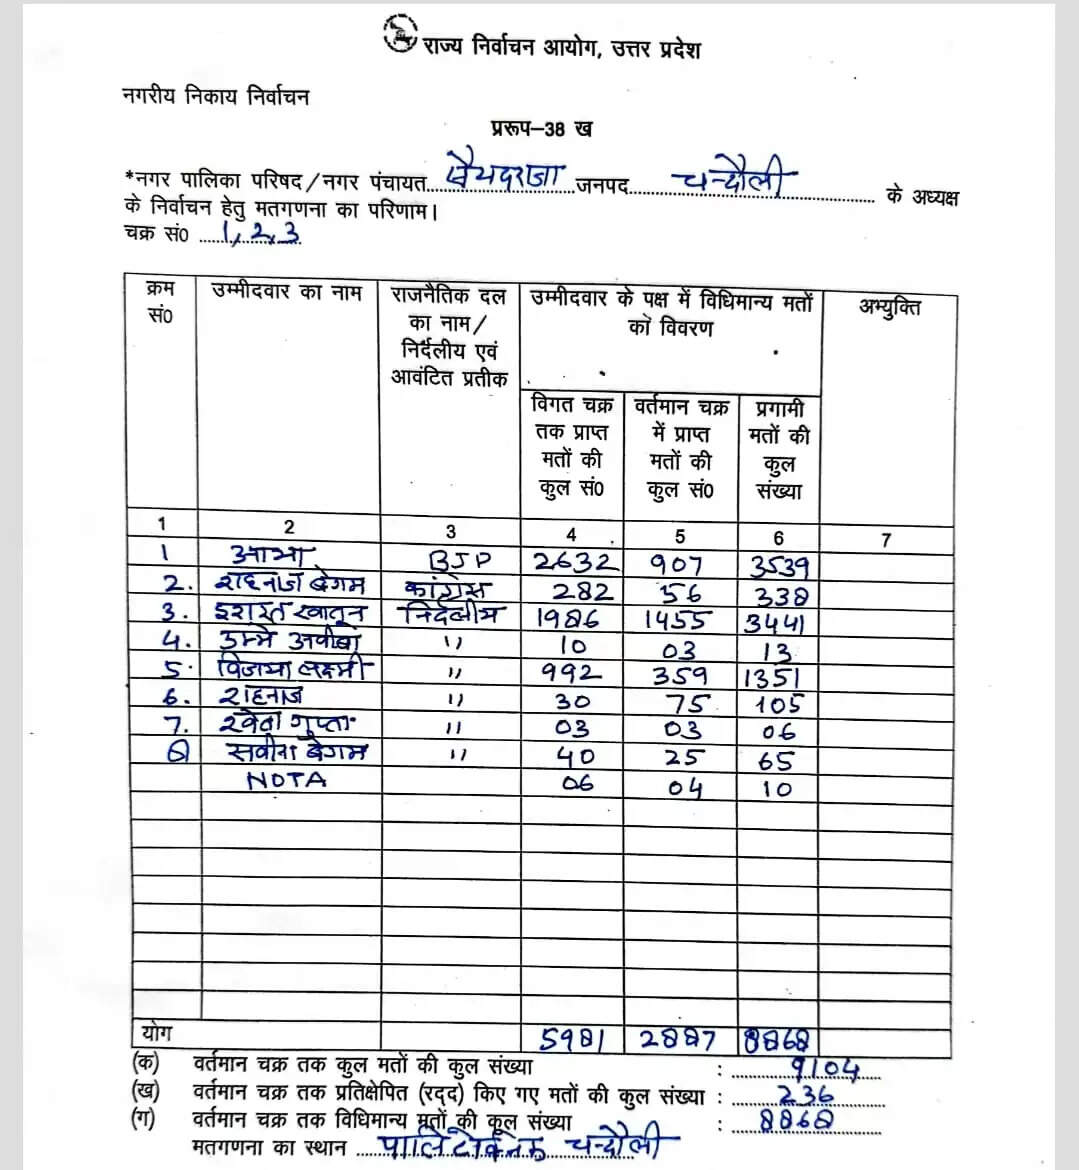 राज्य निर्वाचन आयोग, उत्तर प्रदेश
नगरीय निकाय निर्वाचन
प्ररूप–38 ख
*नगर पालिका परिषद/नगर पंचायत सैयदराजा जनपद चन्दौली के अध्यक्ष
के निर्वाचन हेतु मतगणना का परिणाम।
चक्र सं0 1, 2, 3
क्रम सं0 उम्मीदवार का नाम राजनैतिक दल का नाम/ निर्दलीय एवं आवंटित प्रतीक उम्मीदवार के पक्ष में विधिमान्य मतों को विवरण अभ्युक्ति
विगत चक्र तक प्राप्त मतों की कुल सं0 वर्तमान चक्र में प्राप्त मतों की कुल सं0 प्रगामी मतों की कुल संख्या
1 2 3 4 5 6 7
1 आभा BJP 2632 907 3539
2. शहनाज बेगम कांग्रेस 282 56 338
3. इशरत खातून निर्दलीय 1986 1455 3441
4. उम्मे " 10 03 13
5. विजया लक्ष्मी " 992 359 1351
6. शहनाज " 30 75 105
7. श्वेता गुप्ता " 03 03 06
8 सबीना बेगम " 40 25 65
NOTA 06 04 10
योग 5981 2887 8868
(क) वर्तमान चक्र तक कुल मतों की कुल संख्या : 9104
(ख) वर्तमान चक्र तक प्रतिक्षेपित (रद्द) किए गए मतों की कुल संख्या : 236
(ग) वर्तमान चक्र तक विधिमान्य मतों की कुल संख्या : 8868
मतगणना का स्थान पालिटेक्निक चन्दौली